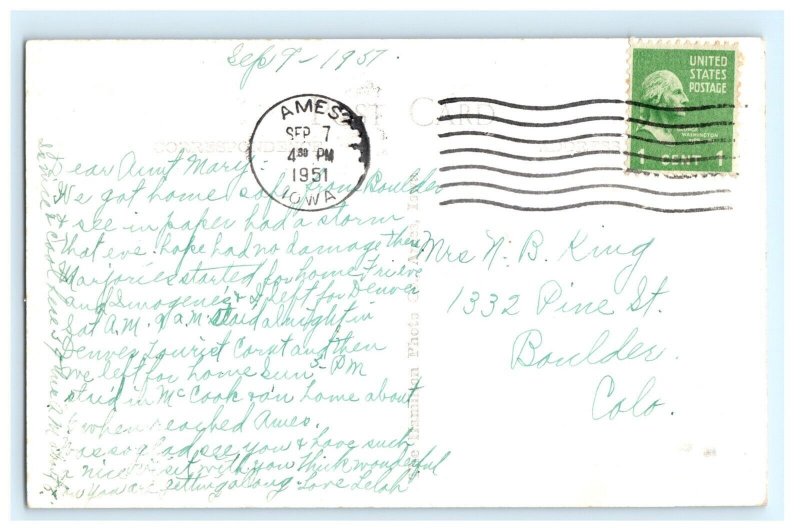 Sep 7 - 1951.
POST CARD
CORRESPONDENCE
AMES
SEP 7
4 30 PM
1951
IOWA
UNITED
STATES
POSTAGE
WASHINGTON
1 CENT 1
Dear Aunt Mary -
We got home safe from Boulder
& see in paper had a storm
that eve. hope had no damage there
Marjories started for home Fri eve
and Imogene's & I left for Denver
Sat A.M. staid all night in
Denver Tourist Court and then
we left for home Sun 3 - PM
staid in McCook & on home about
6 when reached Ames.
Was so glad see you & have such
a nice visit with you think wonderful
how you are getting along. Love Lelah
Mrs N. B. King
1332 Pine St.
Boulder.
Colo.
Photo